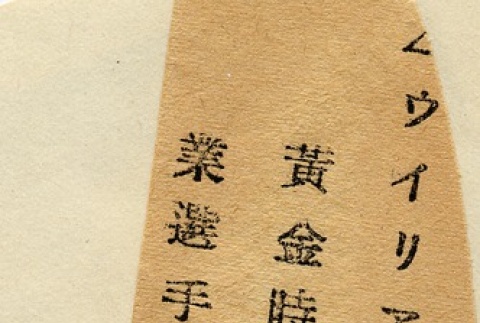 ムウイリア
黃金時
業選手